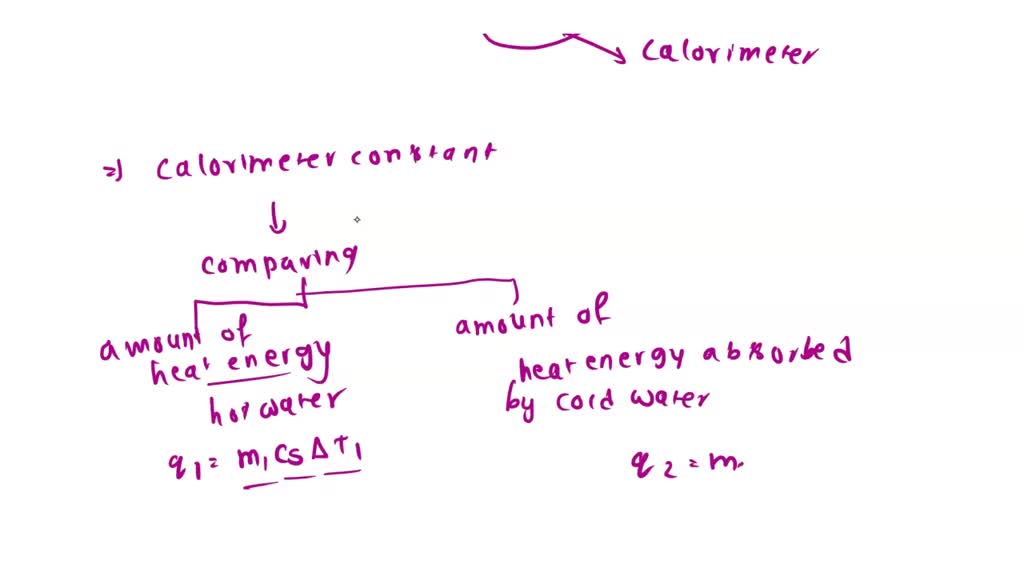 Calorimeter
=) calorimeter constant
↓
comparing
amount of
heat energy
hot water
q1 = m1 Cs ΔT1
amount of
heat energy absorbed
by cord water
q2 = m